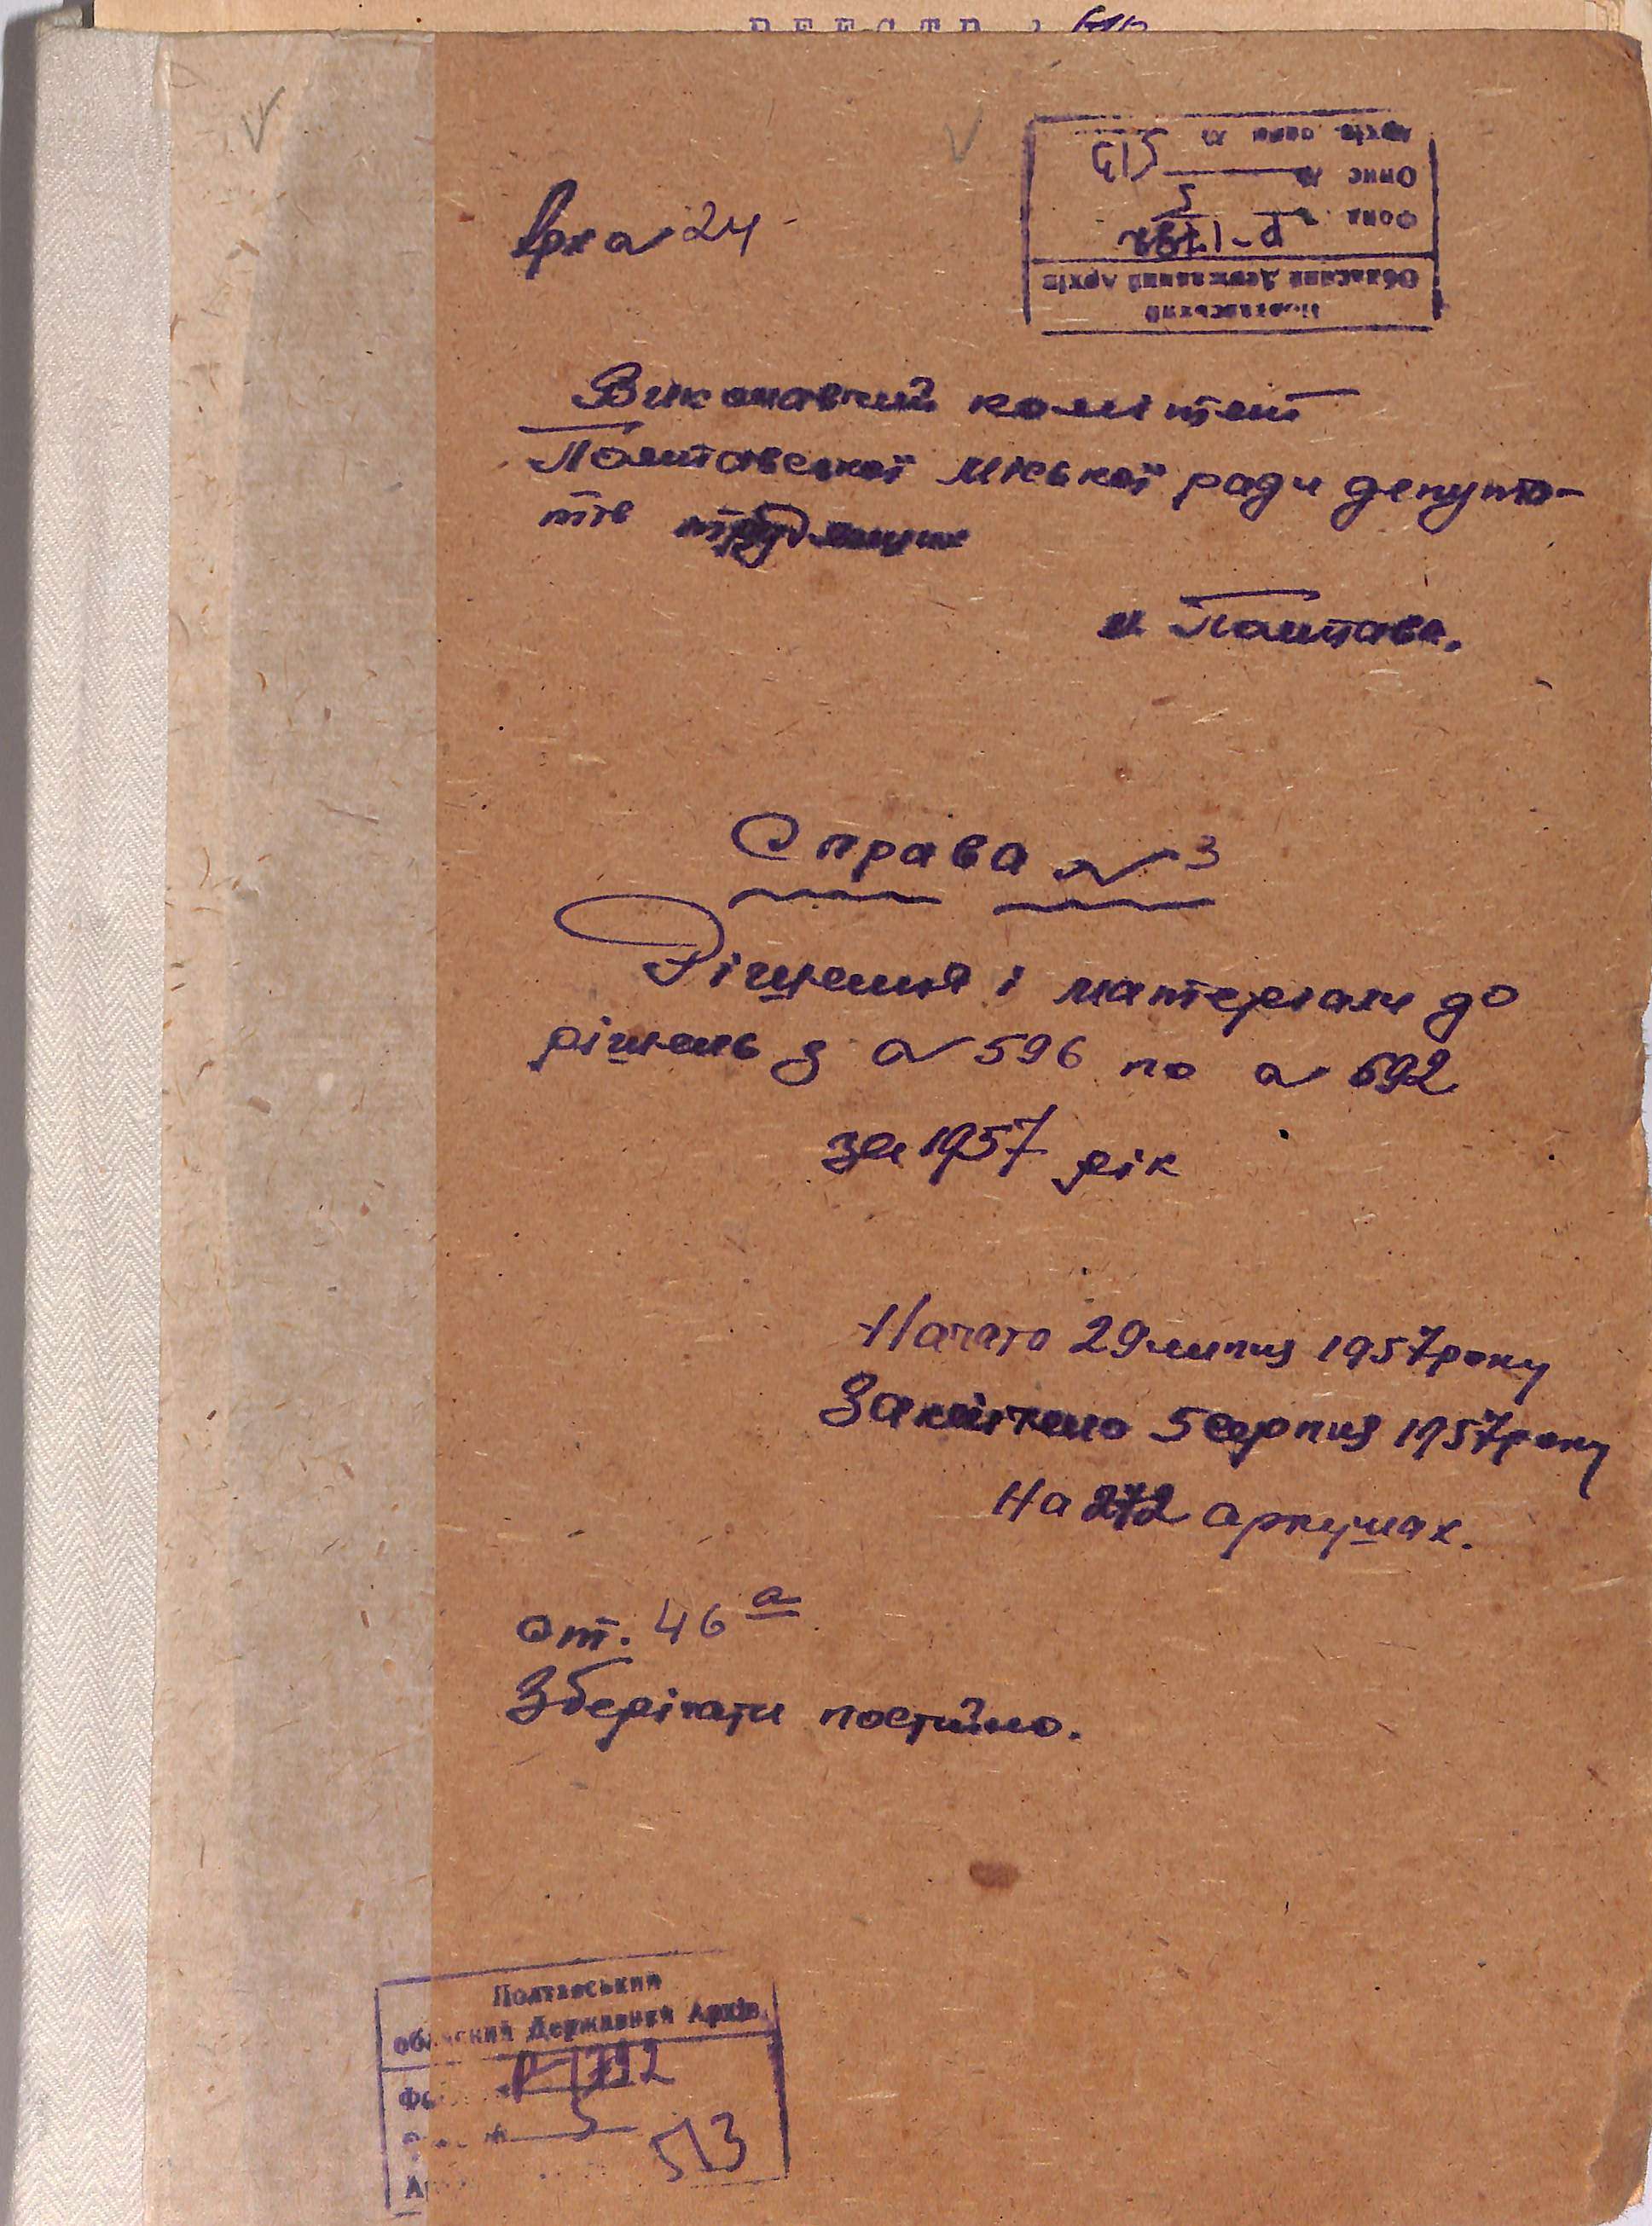 РЕЕСТР
Полтавський
Обласний Державний Архів
Фонд № Р-1792
Опис № 5
Архів. одини № 513
№ 24
Виконавчий комітет
Полтавської міської ради депута-
тів трудящих
м Полтава.
Справа № 3
Рішення і матеріали до
рішень з № 596 по № 692
за 1957 рік
Начато 29 липня 1957 року
Закінчено 5 серпня 1957 року
На 272 аркушах.
От. 46 а
Зберігати постійно.
Полтавський
Обласний Державний Архів
Р-1792
5
513